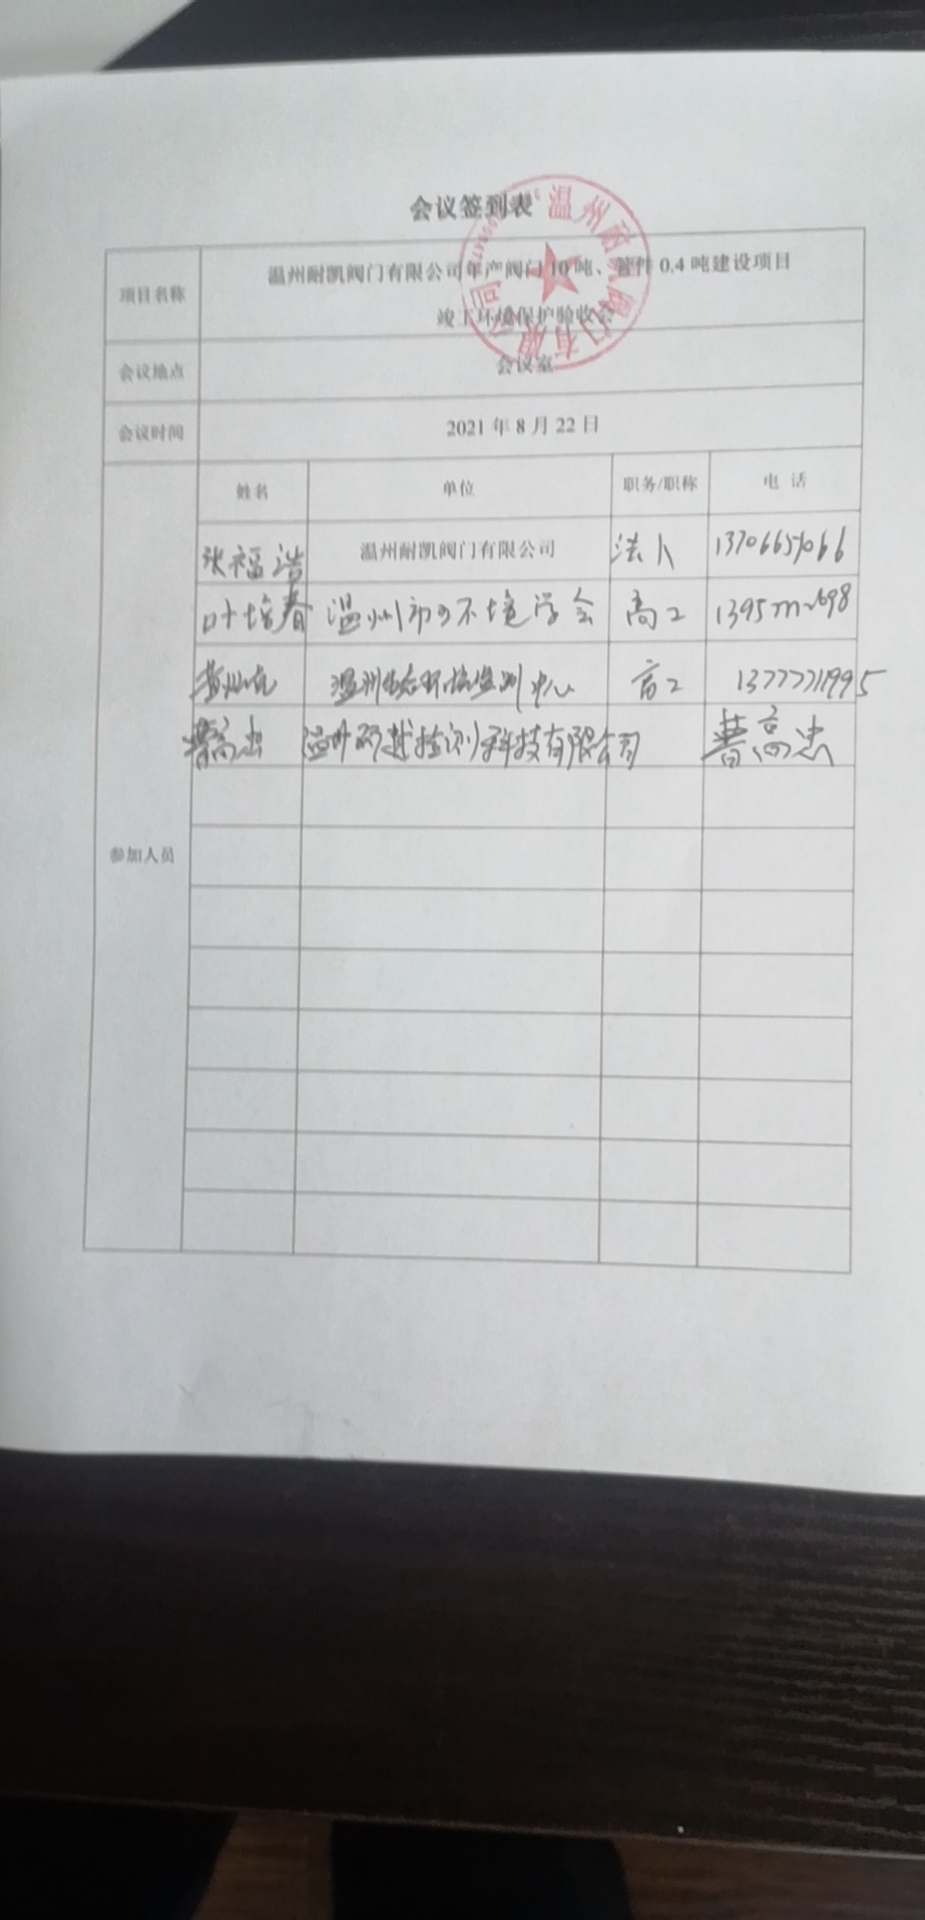 会议签到表
项目名称
温州耐凯阀门有限公司年产阀门10吨、管件0.4吨建设项目
竣工环境保护验收会
会议地点 会议室
会议时间 2021年8月22日
姓名 单位 职务/职称 电话
张福浩 温州耐凯阀门有限公司 法人
叶培春 温州市环境学会 高工
温州生态环境监测中心 高工 13777711995
高忠 检测科技有限公司 高忠
参加人员
温州耐凯阀门有限公司